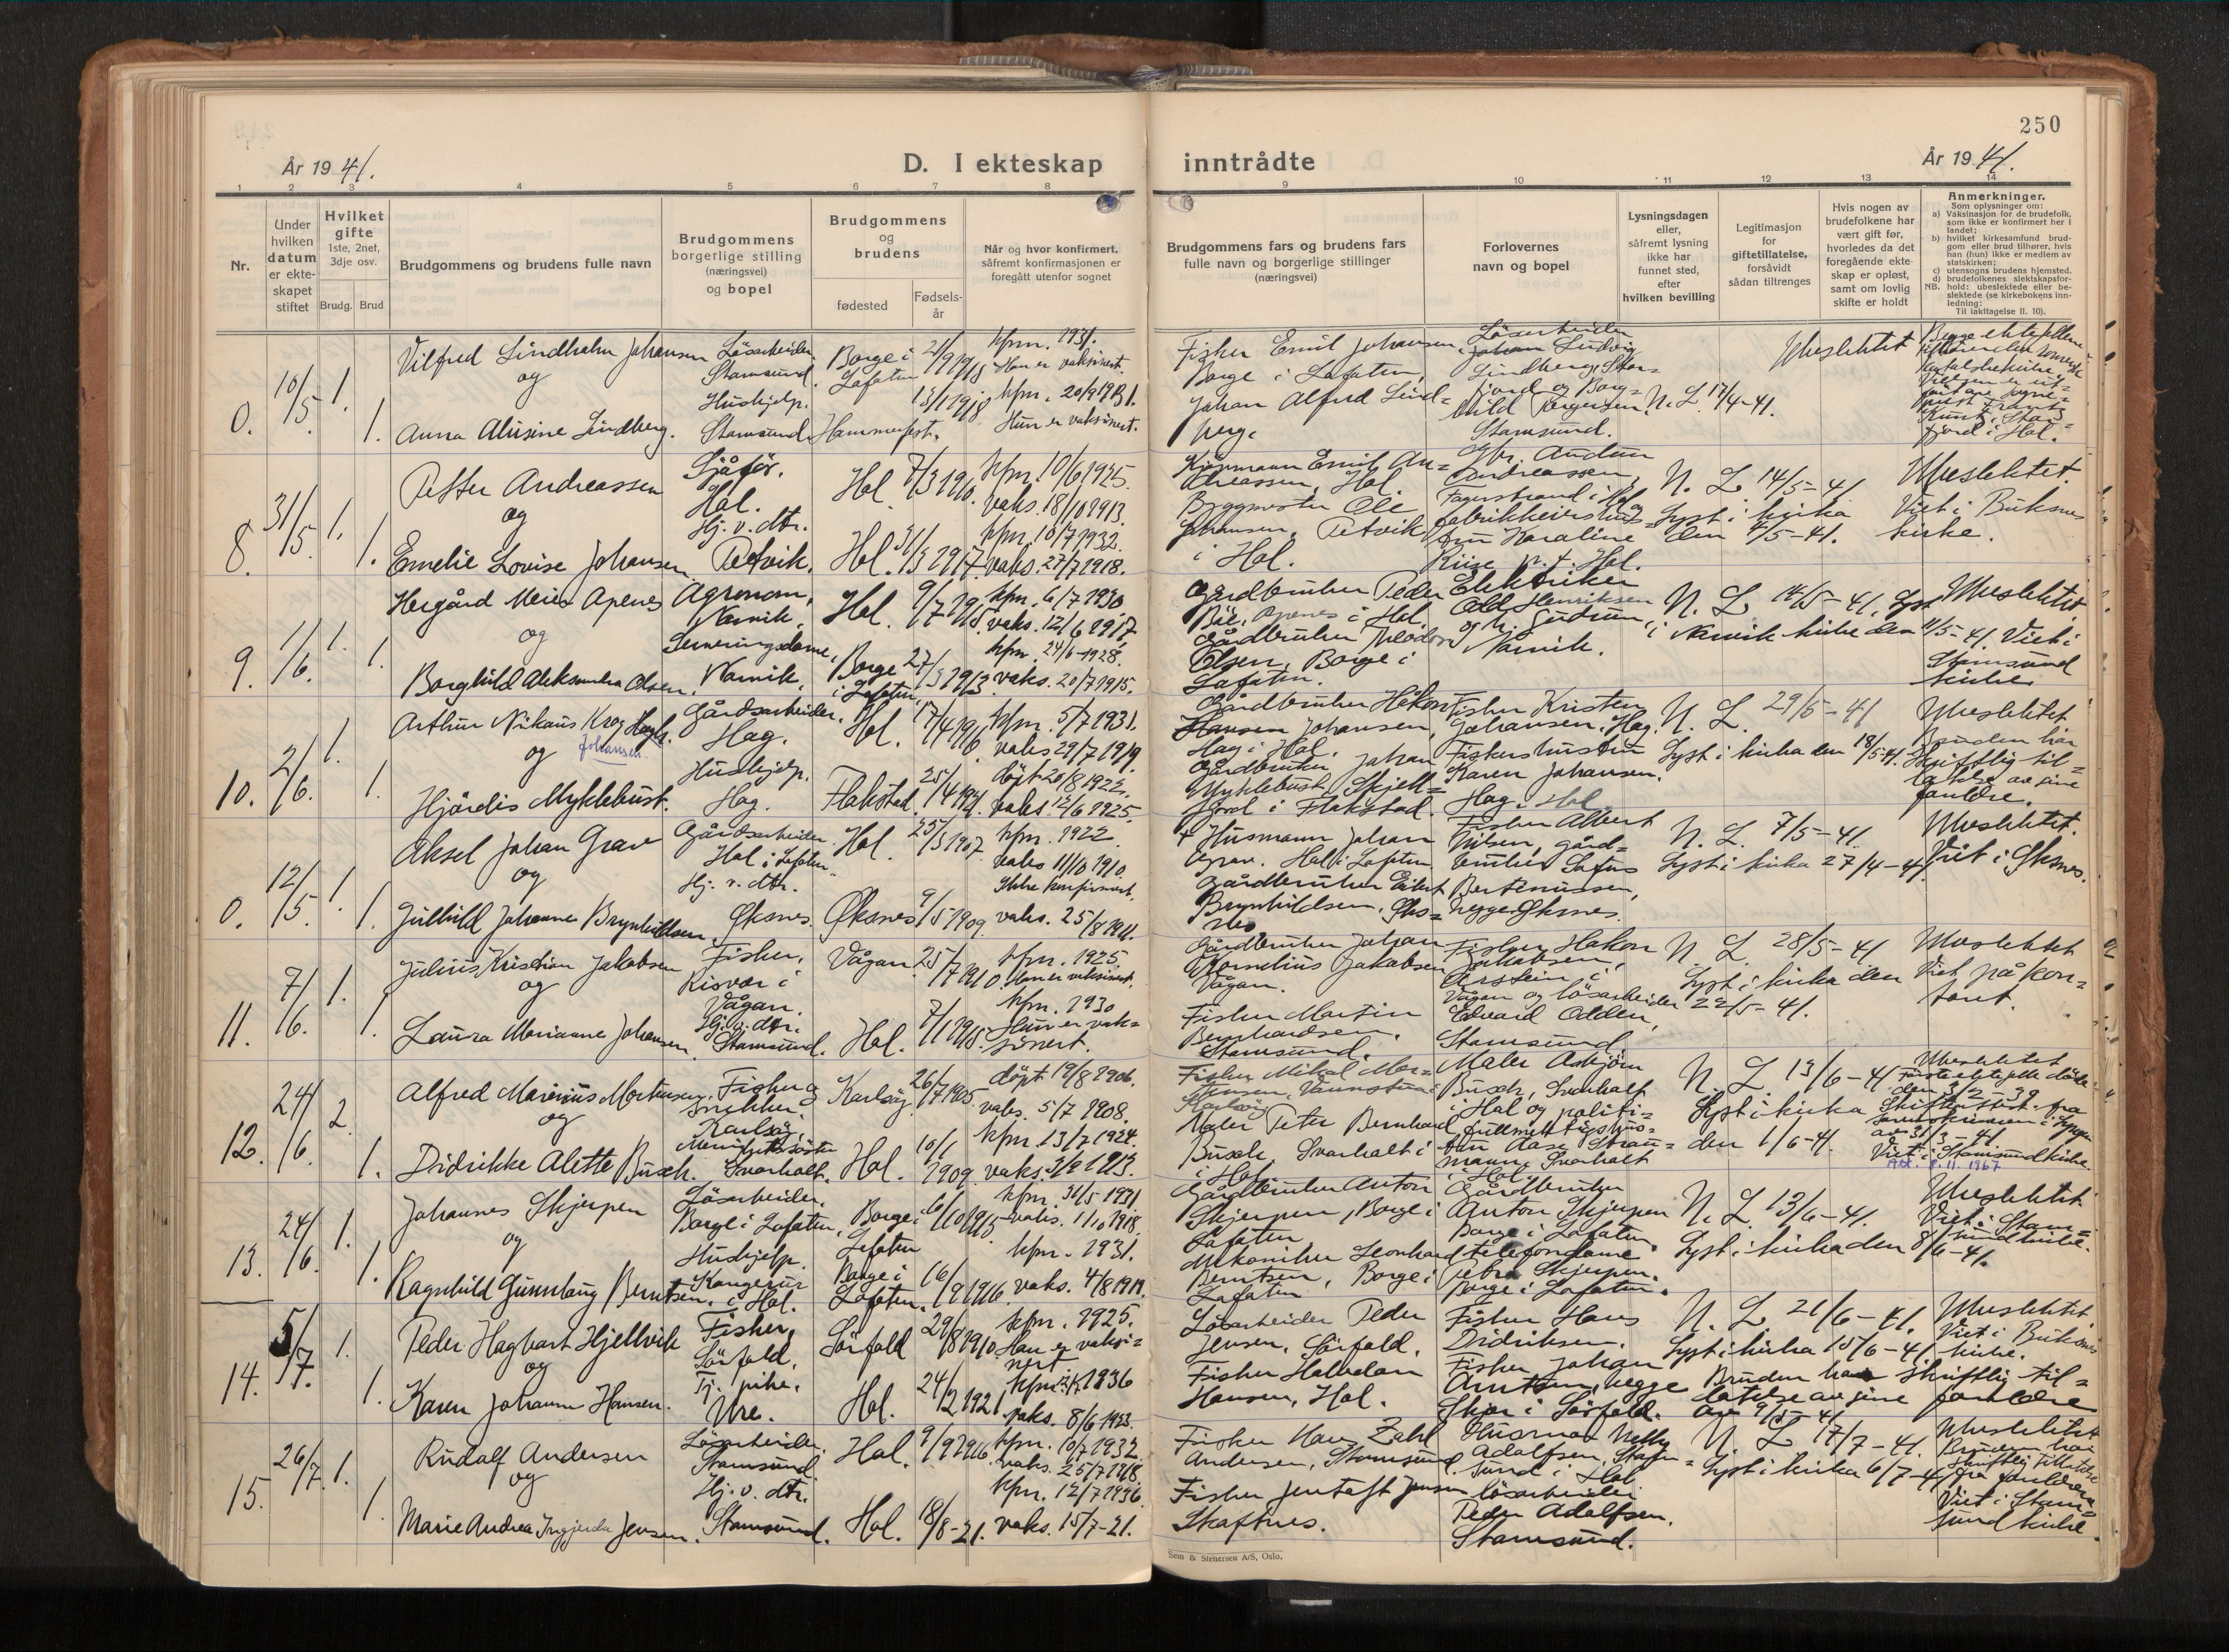 250
År 1941.
D. I ekteskap
inntrådte
År 1941.
1 2 3 4 5 6 7 8 9 10 11 12 13 14
Nr.
Under
hvilken
datum
er ekte-
skapet
stiftet
Hvilket
gifte
1ste, 2net,
3dje osv.
Brudg. Brud
Brudgommens og brudens fulle navn
Brudgommens
borgerlige stilling
(næringsvei)
og bopel
Brudgommens
og
brudens
fødested
Fødsels-
år
Når og hvor konfirmert,
såfremt konfirmasjonen er
foregått utenfor sognet
Brudgommens fars og brudens fars
fulle navn og borgerlige stillinger
(næringsvei)
Forlovernes
navn og bopel
Lysningsdagen
eller,
såfremt lysning
ikke har
funnet sted,
efter
hvilken bevilling
Legitimasjon
for
giftetillatelse,
forsåvidt
sådan tiltrenges
Hvis nogen av
brudefolkene har
vært gift før,
hvorledes da det
foregående ekte-
skap er opløst,
samt om lovlig
skifte er holdt
Anmerkninger.
Som oplysninger om:
a) Vaksinasjon for de brudefolk,
som ikke er konfirmert her i
landet;
b) hvilket kirkesamfund brud-
gom eller brud tilhører, hvis
han (hun) ikke er medlem av
statskirken;
c) utensogns brudens hjemsted.
d) brudefolkenes slektskapsfor-
hold: ubeslektede eller be-
slektede (se kirkebokens inn-
ledning:
NB.
Til iakttagelse II. 10).
0. 10/5. 1. 1.
Vilfred Lindholm Johansen
og
Anna Alusine Lindberg.
Løsarbeider.
Stamsund.
Hushjelp.
Stamsund.
Borge i
Lofoten
Hammerfest.
kfm. 1931.
Han er vaksinert.
13/1 1918
kfm. 20/9 1931.
Hun er vaksinert.
Fisker Emil Johansen,
Borge i Lofoten,
Johan Alfred Lind=
berg.
Løsarbeider
Johan Ludvig
Lindberg, Stor-
fjord og Borg=
hild Torgersen,
Stamsund.
N. L. 17/4-41.
Ubeslektet
fjord i Hol.
8. 31/5. 1. 1.
Petter Andreassen
og
Emelie Lovise Johansen
Sjåfør.
Hol.
Hj. v. dtr.
Petvik.
Hol. 7/3 1910.
Hol. 31/3 1917.
kfm. 10/6 1925.
vaks. 18/10 1913.
kfm. 10/7 1932.
vaks. 27/7 1918.
Kjøpmann Emil An=
dreassen, Hol
Byggmester Ole
Johansen, Petvik
i Hol.
Andreassen,
Fagerstrand i Hol og
fru Karoline
Riise p.t. Hol.
N. L. 14/5-41
Lyst i kirka
den 4/5-41.
Ubeslektet.
Viet i Buksnes
kirke.
9. 1/6. 1. 1.
Hergård Meier Apenes
og
Borghild Aleksandra Olsen.
Agronom,
Narvik.
Serveringsdame,
Narvik.
Hol.
Borge
i Lofoten
9/7 1915.
27/3 1913.
kfm. 6/7 1930
vaks. 12/6 1917
kfm. 24/6-1928.
vaks. 20/7 1915.
Gårdbruker Peder
Apenes i Hol.
Gårdbruker Theodor
Olsen, Borge i
Lofoten.
Elektriker
Odd Henriksen
og fr. Gudrun,
Narvik.
N. L. 14/5-41. Lyst
i Narvik kirke den 11/5-41.
Ubeslektet.
Viet i
Stamsund
kirke.
10. 2/6. 1. 1.
Arthur Nikaus Krog
Johansen
og
Hjørdis Myklebust.
Gårdsarbeider.
Hag.
Hushjelp.
Hag.
Hol.
Flakstad.
17/4 1916
25/4 1921.
kfm. 5/7 1931.
vaks 29/7 1919.
døpt 20/8 1922.
vaks. 12/6 1925.
Gårdbruker Håkon
Hansen Johansen,
Hag i Hol.
Gårdbruker Johan
Myklebust, Skjell=
fjord i Flakstad.
Fisker Kristen
Johansen, Hag.
Fiskershustru
Karen Johansen.
Hag. Hol.
N. L. 29/5-41
Lyst i kirka den 18/5-41.
Ubeslektet.
Bruden har
skriftlig til=
latelse av sine
foreldre.
0. 12/5. 1. 1.
Aksel Johan Grav
og
Gulhild Johanne Brynhildsen.
Gårdsarbeider.
Hol i Lofoten.
Hj. v. dtr.
Øksnes.
Hol.
Øksnes
25/3 1907
9/5 1909
kfm. 1922
vaks 11/10 1910.
Ikke konfirmert.
vaks. 25/8 1911.
+ Husmann Johan
Grav. Hol i Lofoten.
Gårdbruker Eilert
Brynhildsen, Øks=
nes
Fisker Albert
Nilsen, gård=
bruker Lofus
Bertinussen,
begge Øksnes.
N. L. 7/5-41.
Lyst i kirka 27/4-41.
Ubeslektet.
Viet i Øksnes.
11. 7/6. 1. 1.
Julius Kristian Jakobsen
og
Laura Marianne Johansen.
Fisker,
Risvær i
Vågan.
Hj. v. dtr.
Stamsund.
Vågan.
Hol.
25/7 1910
7/1 1918.
kfm. 1925
Han er vaksinert.
kfm. 1930
Hun er vak=
sinert.
Gårdbruker Johan
Kornelius Jakobsen
Vågan.
Fisker Martin
Bernhardsen.
Stamsund.
Fisker Håkon
Jakobsen,
Årstein i
Vågan og løsarbeider
Edvard Odden,
Stamsund
N. L. 28/5-41
Lyst i kirka den
22/5-41.
Ubeslektet
Viet på kon=
toret.
12. 24/6. 2. 1.
Alfred Marenius Mortensen.
og
Didrikke Alette Busch.
Fisker og
snekker.
Karlsøy,
Menighetssøster
Svarholt.
Karlsøy
Hol.
26/7 1905
10/1 1909
døpt 19/8 1906.
vaks. 5/7 1908.
kfm. 13/7 1924.
vaks. 3/9 1913.
Fisker Mikal Mor=
tensen, Vannstua
Karlsøy
Maler Peter Bernhard
Busch, Svarholt i
i Hol
Maler Asbjørn
Busch, Svarholt
i Hol og politi=
fullmektigshus=
tru Aase Strau=
mann, Svarholt
i Hol
N. L. 13/6-41
Lyst i kirka
den 1/6-41.
Ubeslektet
Første ektefelle døde
Viet i Stamsund kirke.
11. 1967
13. 24/6. 1. 1.
Johannes Skjerpen
og
Ragnhild Gunnlaug Berntsen.
Løsarbeider.
Borge i Lofoten.
Hushjelp.
Kangerur
i Hol.
Borge i
Lofoten
Borge i
Lofoten.
6/10 1913
16/9 1916
kfm. 31/5 1931
vaks. 1/10 1918.
kfm. 1931.
vaks. 4/8 1919.
Gårdbruker Anton
Skjerpen, Borge i
Lofoten
Mekaniker Leonhard
Berntsen, Borge i
Lofoten
Gårdbruker
Anton Skjerpen
Borge i Lofoten.
telefondame
Petra Skjerpen.
Borge i Lofoten.
N. L. 13/6-41.
Lyst i kirka den 8/6-41.
Ubeslektet
Viet i Stam=
sund kirke.
14. 5/7. 1. 1.
Peder Hagbart Hjellvik
og
Karen Johanne Hansen.
Fisker,
Sørfold,
Tj. pike.
Ure.
Sørfold
Hol.
29/8 1910
24/2 1921.
kfm. 1925.
Han er vaksi=
nert
kfm. 1936
vaks. 8/6 1933.
Løsarbeider Peder
Jensen, Sørfold.
Fisker Halvdan
Hansen, Hol.
Fisker Hans
Didriksen.
Fisker Johan
Arntsen, begge
Skjør i Sørfold.
N. L. 21/6-41.
Lyst i kirka 15/6-41
Bruden har skriftlig til=
latelse av sine foreldre
av 9/5-41
Ubeslektet
Viet i Buksnes
kirke.
15. 26/7. 1. 1.
Rudolf Andersen
og
Marie Andrea Ingjerda Jensen.
Løsarbeider.
Stamsund
Hj. v. dtr.
Stamsund.
Hol.
Hol.
9/9 1916.
18/8-21.
kfm. 10/7 1932
vaks. 25/7 1918.
kfm. 12/7 1936
vaks. 15/7-21.
Fisker Hans Zahl
Andersen, Stamsund.
Fisker Jentoft Jensen
Skaftnes.
Husmor Netty
Adolfsen, Stam=
sund i Hol
løsarbeider
Peder Adolfsen.
Stamsund.
N. L. 17/7-41.
Lyst i kirka 6/7-41
Ubeslektet
Bruden har
skriftlig tillatelse
fra foreldrene
Viet i Stam=
sund kirke.
Sem & Stenersen A/S, Oslo.